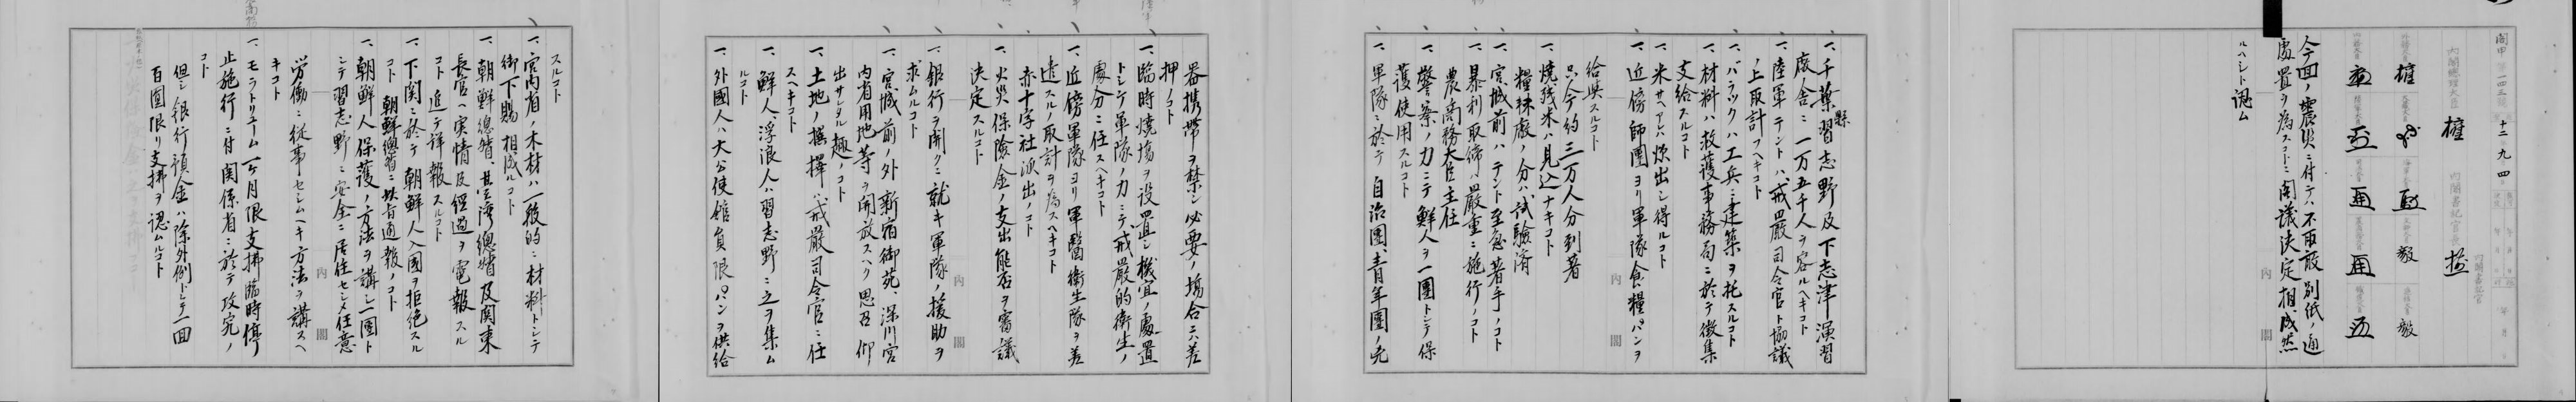 閣甲第一四三號
十二
九
四
内閣總理大臣
内閣書記官長
内閣書記官
今回ノ震災ニ付テハ不取敢別紙ノ通
處置ヲ為スコトニ閣議決定相成然
ルヘシト認ム
内閣
一、千葉縣習志野及下志津演習
廠舎ニ一万五千人ヲ容ルヘキコト
一、陸軍テントハ戒嚴司令官ト協議
ノ上取計フヘキコト
一、バラックハ工兵ニ建築ヲ托スルコト
一、材料ハ救護事務局ニ於テ徴集
支給スルコト
一、米サヘアレハ焚出シ得ルコト
一、近傍師團ヨリ軍隊食糧パンヲ
給與スルコト
只今約三万人分到著
一、焼残米ハ見込ナキコト
糧秣廠ノ分ハ試驗濟
一、宮城前ハテント至急著手ノコト
一、暴利取締ハ嚴重ニ施行ノコト
農商務大臣主任
一、警察ノ力ニテ鮮人ヲ一團トシテ保
護使用スルコト
一、軍隊ニ於テ自治團、青年團ノ兇
内閣
器携帯ヲ禁シ必要ノ場合ニハ差
押ノコト
一、臨時焼場ヲ設置シ機宜ノ處置
トシテ軍隊ノ力ニテ戒嚴的衛生ノ
處分ニ任スヘキコト
一、近傍軍隊ヨリ軍醫衛生隊ヲ差
遣スルノ取計ヲ為スヘキコト
赤十字社派出ノコト
一、火災保險金ノ支出能否ヲ審議
決定スルコト
一、銀行ヲ開クニ就キ軍隊ノ援助ヲ
求ムルコト
一、宮城前ノ外新宿御苑、深川宮
内省用地等ヲ開放スヘク思召仰
出サレタル趣ノコト
一、土地ノ撰擇ハ戒嚴司令官ニ任
スヘキコト
一、鮮人、浮浪人ハ習志野ニ之ヲ集ム
ルコト
一、外國人ハ大公使館員限パンヲ供給
内閣
スルコト
一、宮内省ノ木材ハ一般的ニ材料トシテ
御下賜相成ルコト
一、朝鮮總督、臺湾總督及関東
長官ヘ実情及經過ヲ電報スル
コト 追テ詳報スルコト
一、下関ニ於テ朝鮮人入國ヲ拒絶スル
コト 朝鮮總督ニ其旨通報ノコト
一、朝鮮人保護ノ方法ヲ講シ一團ト
シテ習志野ニ安全ニ居住セシメ任意
労働ニ従事セシムヘキ方法ヲ講スヘ
キコト
一、モラトリユーム一ヶ月限支拂臨時停
止施行ニ付関係省ニ於テ攻究ノ
コト
但シ銀行預金ハ除外例トシテ一回
百圓限リ支拂ヲ認ムルコト
内閣